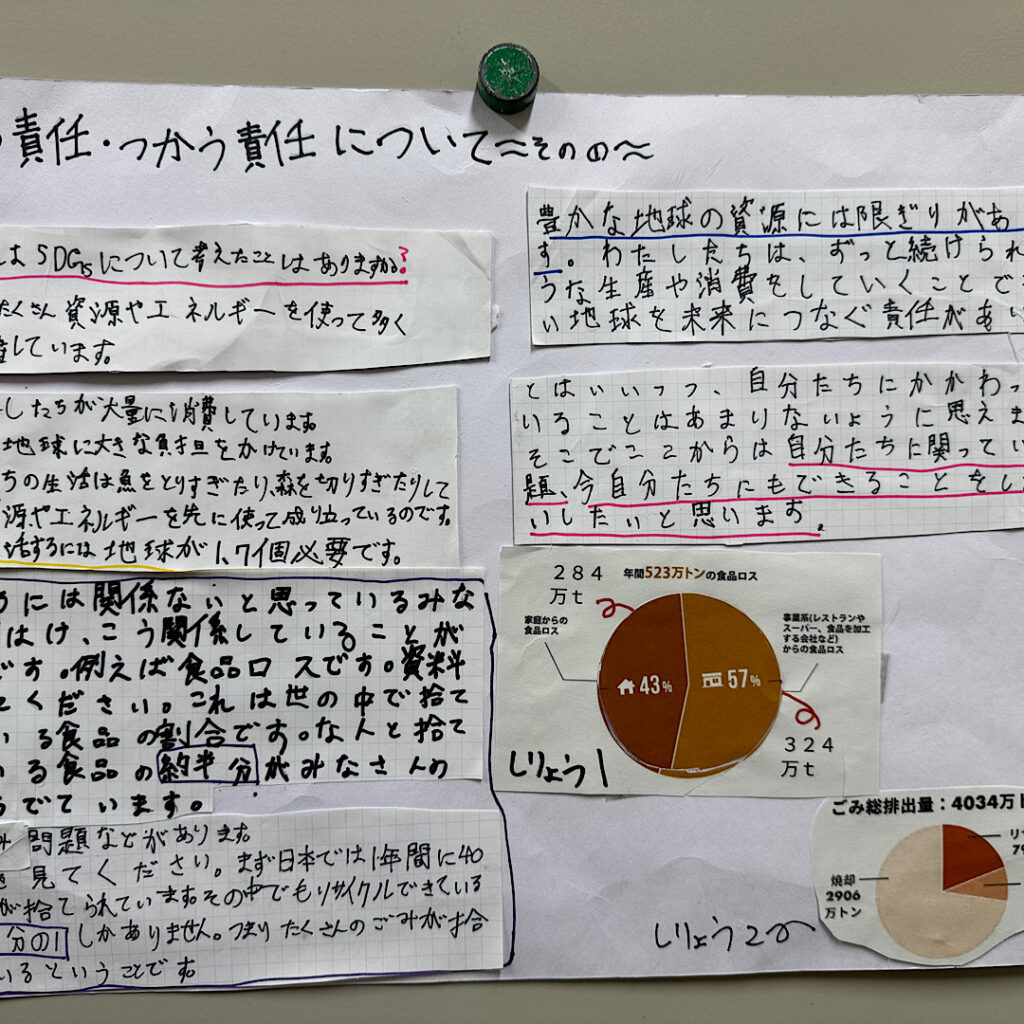 責任・つかう責任について〜その①〜
はSDGsについて考えたことはありますか?
たくさん資源やエネルギーを使って多く
しています。
したちが大量に消費しています。
地球に大きな負担をかけています。
ちの生活は魚をとりすぎたり、森を切りすぎたりして
源やエネルギーを先に使って成り立っているのです。
活するには地球が1.7個必要です。
には関係ないと思っているみな
はけ、こう関係していることが
です。例えば食品ロスです。資料
てください。これは世の中で捨て
いる食品の割合です。なんと捨て
いる食品の約半分がみなさんの
らでています。
問題などがあります。
見てください。まず日本では1年間に40
が捨てられています。その中でもリサイクルできている
分の1しかありません。つまりたくさんのごみが捨
いるということです。
豊かな地球の資源には限ぎりがあ
す。わたしたちは、ずっと続けられ
うな生産や消費をしていくことで
い地球を未来につなぐ責任があ
とはいいつつ、自分たちにかかわっ
いることはあまりないように思えま
そこでここからは自分たちに関ってい
題、今自分たちにもできることをし
いしたいと思います。
284
万t
年間523万トンの食品ロス
家庭からの
食品ロス
事業系(レストランや
スーパー、食品を加工
する会社など)
からの食品ロス
43%
57%
324
万t
しりょう1
ごみ総排出量:4034万ト
リ
79
焼却
2906
万トン
しりょう2